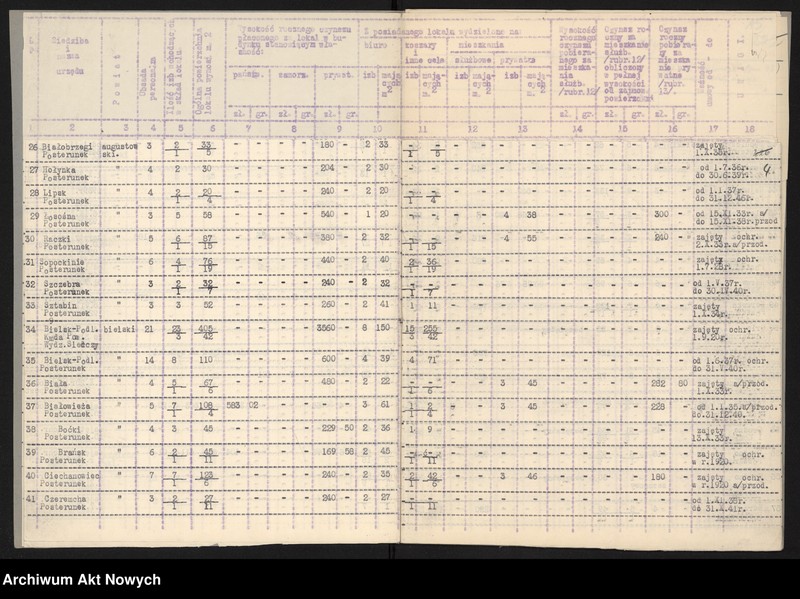 Siedziba i nazwa urzędu
Powiat
Obsada personalna
Ogólna powierzchnia lokalu
Wysokość rocznego czynszu płaconego za lokal w budynku stanowiącym własność:
Z posiadanego lokalu wydzielono na:
biuro
koszary i inne cele
mieszkania
służbowe
prywatne
państw. samorz. prywat.
izb
zł. gr. zł. gr. zł. gr.
1 2 3 4 5 6 7 8 9 10 11 12 13 14 15 16 17 18
26 Białobrzegi Posterunek augustowski. 3 2/1 33/5 - - - - 180 - 2 33 -/1 -/5 - - - - - - - - - - zajęty 1.X.36r.
27 Hołynka Posterunek " 4 2 30 - - - - 204 - 2 30 - - - - - - - - - - - - od 1.7.36r. do 30.6.39r. 4.
28 Lipsk Posterunek " 4 2/1 20/4 - - - - 240 - 2 20 -/1 -/4 - - - - - - - - - - od 1.1.37r. do 31.12.46r.
29 Łosośna Posterunek " 3 5 58 - - - - 540 - 1 20 - - - - 4 38 - - - - 300 - od 15.XI.33r. a/ do 15.XI.38r.przod
30 Raczki Posterunek " 5 6/1 87/15 - - - - 380 - 2 32 -/1 -/15 - - 4 55 - - - - 240 - zajęty ochr. 2.X.33r.a/przod.
31 Sopoćkinie Posterunek " 6 4/1 76/19 - - - - 440 - 2 40 2/1 36/19 - - - - - - - - - - zajęty ochr. 1.7.25r.
32 Szczebra Posterunek " 3 2/1 32/7 - - - - 240 - 2 32 -/1 -/7 - - - - - - - - - - od 1.V.37r. do 30.IV.40r.
33 Sztabin Posterunek " 3 3 52 - - - - 260 - 2 41 1 11 - - - - - - - - - - zajęty 1.X.34r.
34 Bielsk-Podl. Kmda Pow. Wydz.Śledczy bielski 21 23/3 405/42 - - - - 3560 - 8 150 15/3 255/42 - - - - - - - - - - zajęty ochr. 1.9.20r.
35 Bielsk-Podl. Posterunek " 14 8 110 - - - - 600 - 4 39 4 71 - - - - - - - - - - od 1.6.37r. ochr. do 31.V.40r.
36 Biała Posterunek " 4 5/1 67/6 - - - - 480 - 2 22 -/1 -/6 - - 3 45 - - - - 282 60 zajęty a/przod. 1.X.33r.
37 Białowieża Posterunek " 5 7/1 108/4 583 02 - - - - 3 61 1/1 2/4 - - 3 45 - - - - 228 - od 1.1.35.a/przod. do.31.12.40.
38 Boćki Posterunek " 4 3 45 - - - - 229 50 2 36 1 9 - - - - - - - - - - zajęty 13.X.33r.
39 Brańsk Posterunek " 6 2/1 45/11 - - - - 169 58 2 45 -/1 -/11 - - - - - - - - - - zajęty ochr. w r.1920.
40 Ciechanowiec Posterunek " 7 7/1 123/6 - - - - 240 - 2 35 2/1 42/6 - - 3 46 - - - - 180 - zajęty ochr. w r.1920 a/przod.
41 Czeremcha Posterunek " 3 2/1 27/11 - - - - 240 - 2 27 -/1 -/11 - - - - - - - - - - od 1.XI.36r. do 31.X.41r.
Archiwum Akt Nowych